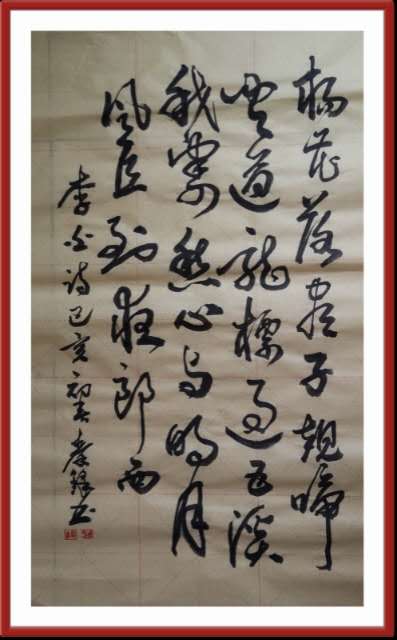 楊花落尽子規啼
闻道龍標過五溪
我寄愁心与明月
风直到夜郎西
李白诗己亥初书